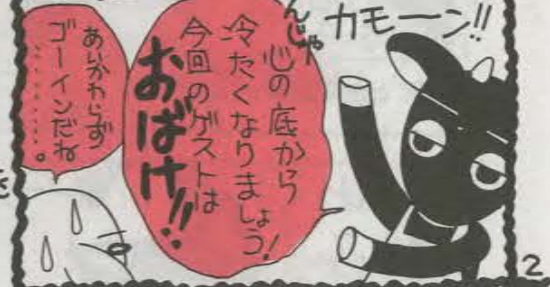 カモーン!!
んじゃ
心の底から
冷たくなりましょう!
今回のゲストは
おばけ!!
あいかわらず
ゴーインだね
………。
2